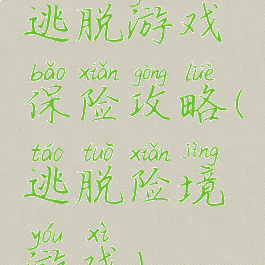 逃脱游戏
bǎo xiǎn gōng lüè
保险攻略(
táo tuō xiǎn jìng
逃脱险境
yóu xì
游戏)